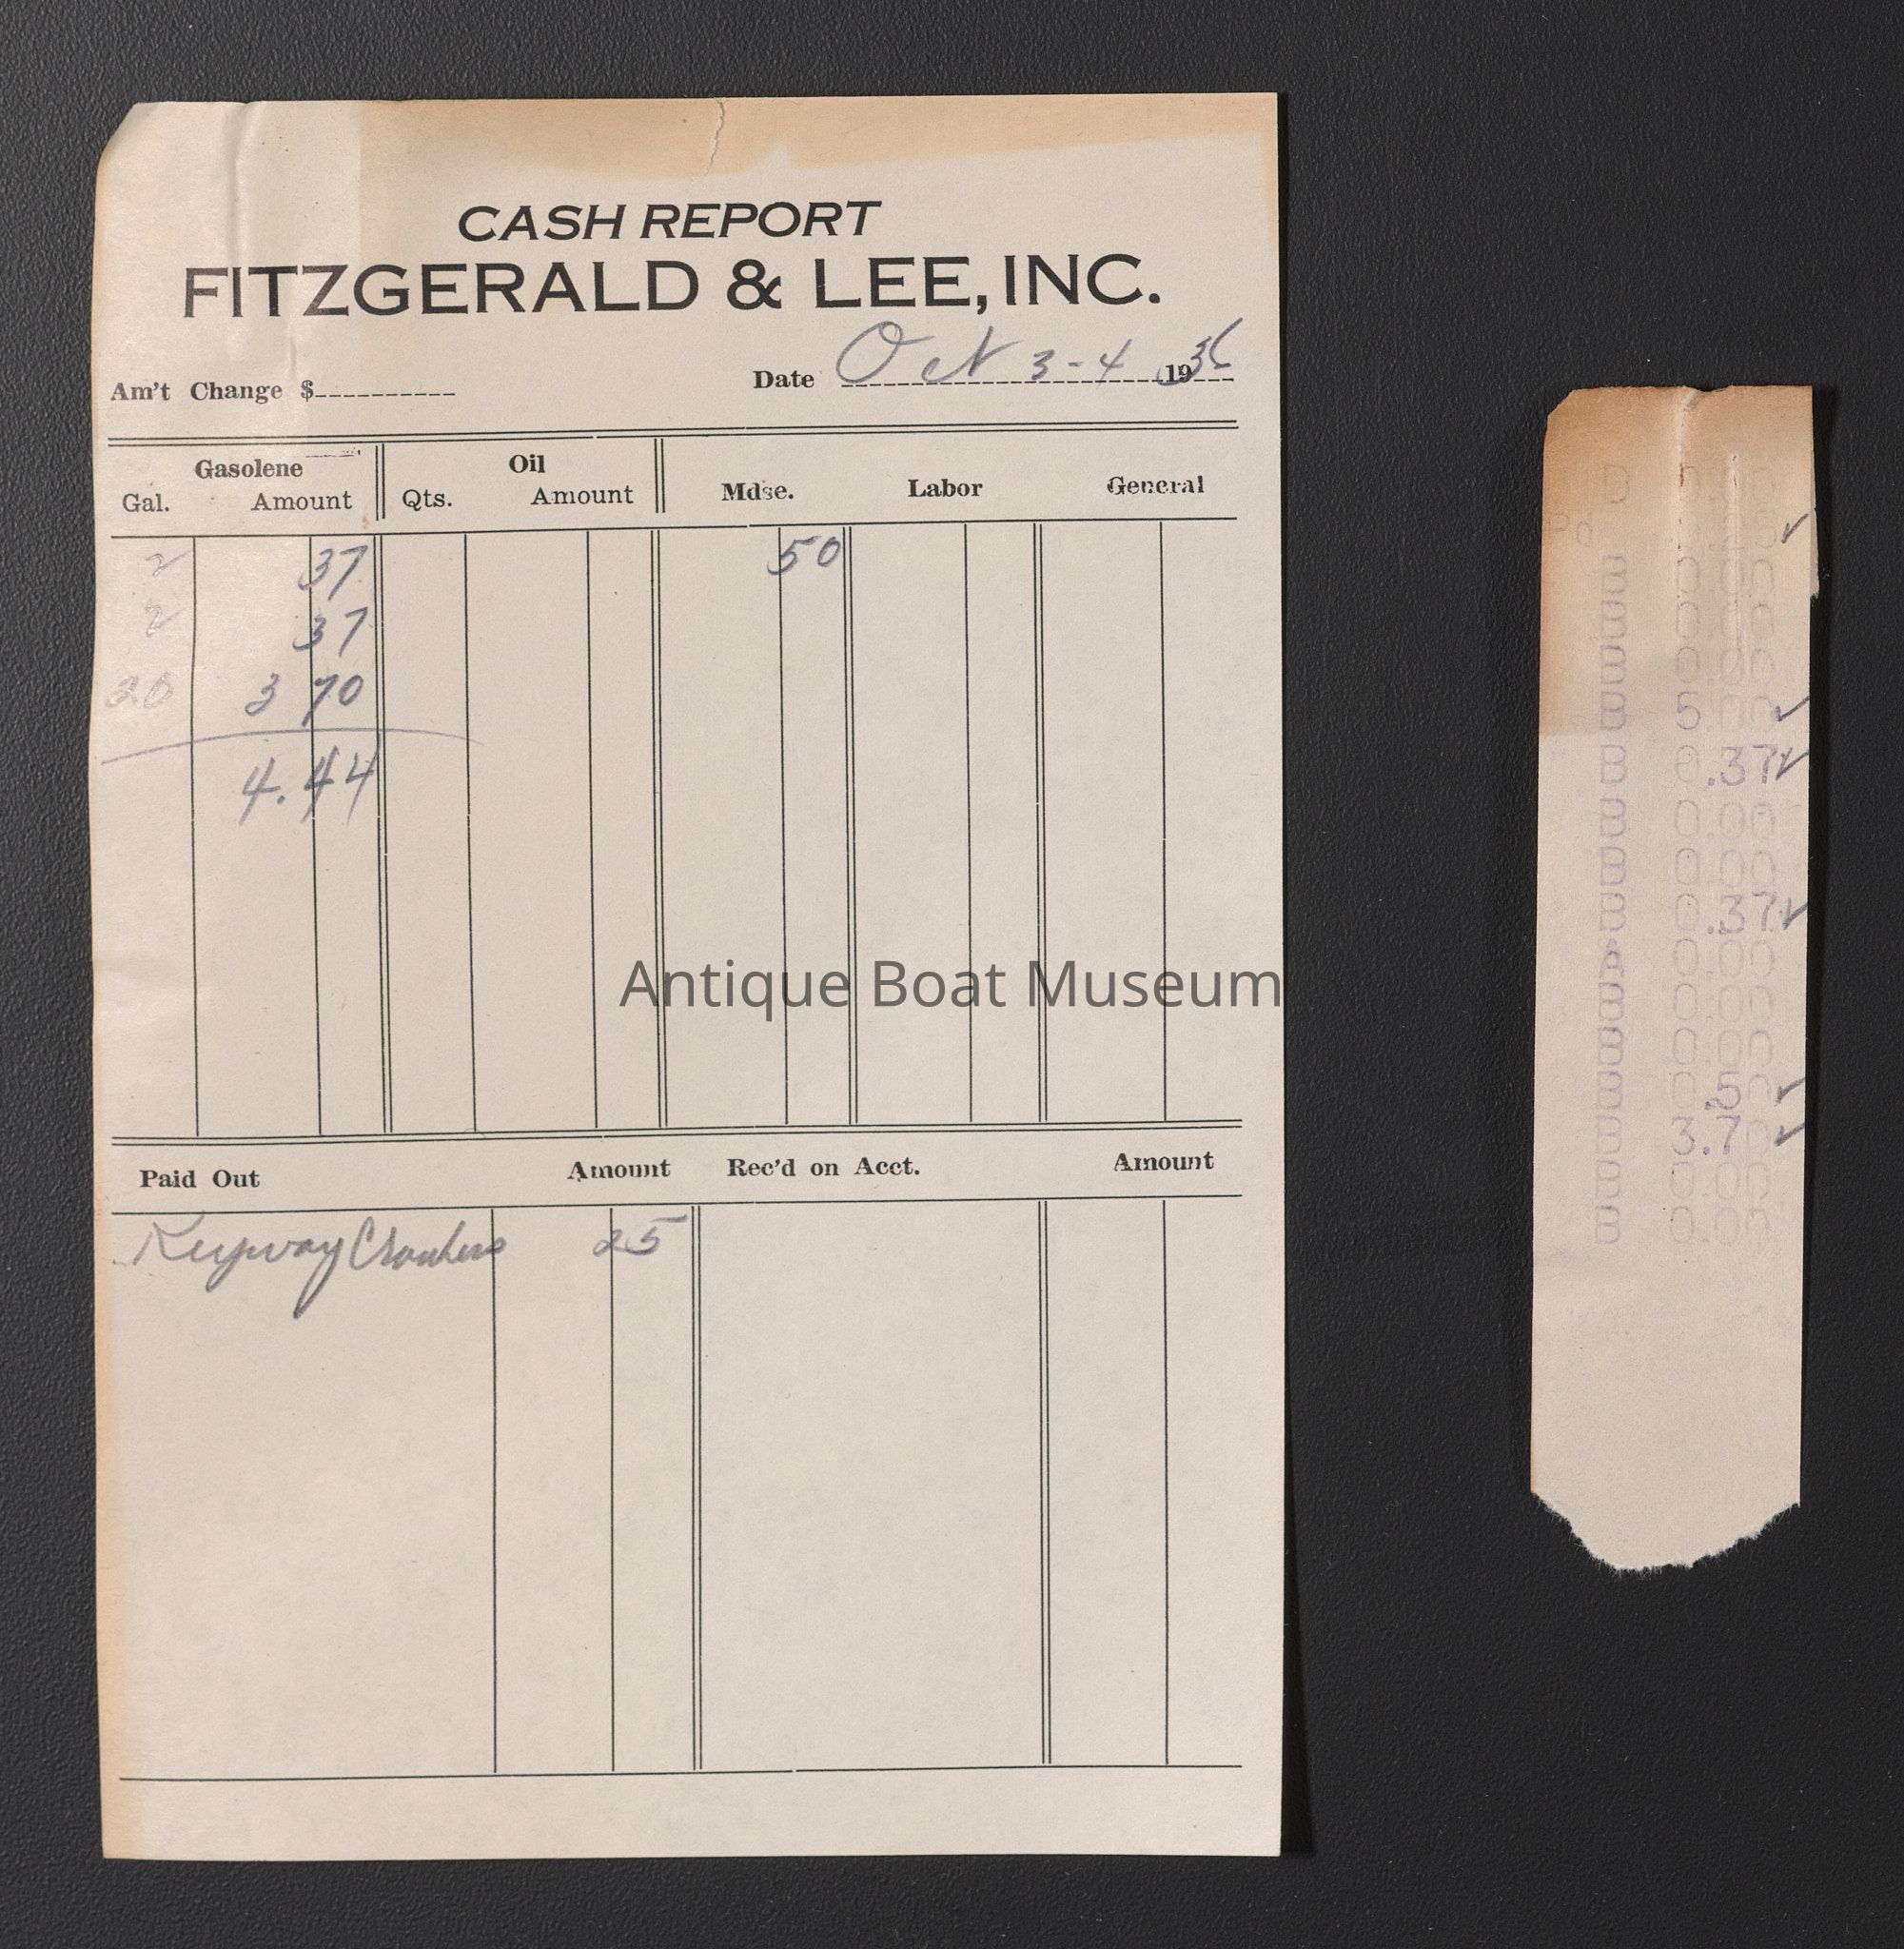 CASH REPORT
FITZGERALD & LEE, INC.
Am't Change $ Date Oct 3-4 1936
Gasolene Oil Mdse. Labor General
Gal. Amount Qts. Amount
2 37 50
2 37
20 3 70
4.44
Antique Boat Museum
Paid Out Amount Rec'd on Acct. Amount
Keyway 25
D
Pd
B 0.00
B 0.00
B 0.00
B 5.00
B 0.37
B 0.00
B 0.00
B 0.37
A 0.00
B 0.00
B 0.00
B 0.50
B 3.70
B 0.00
B 0.00